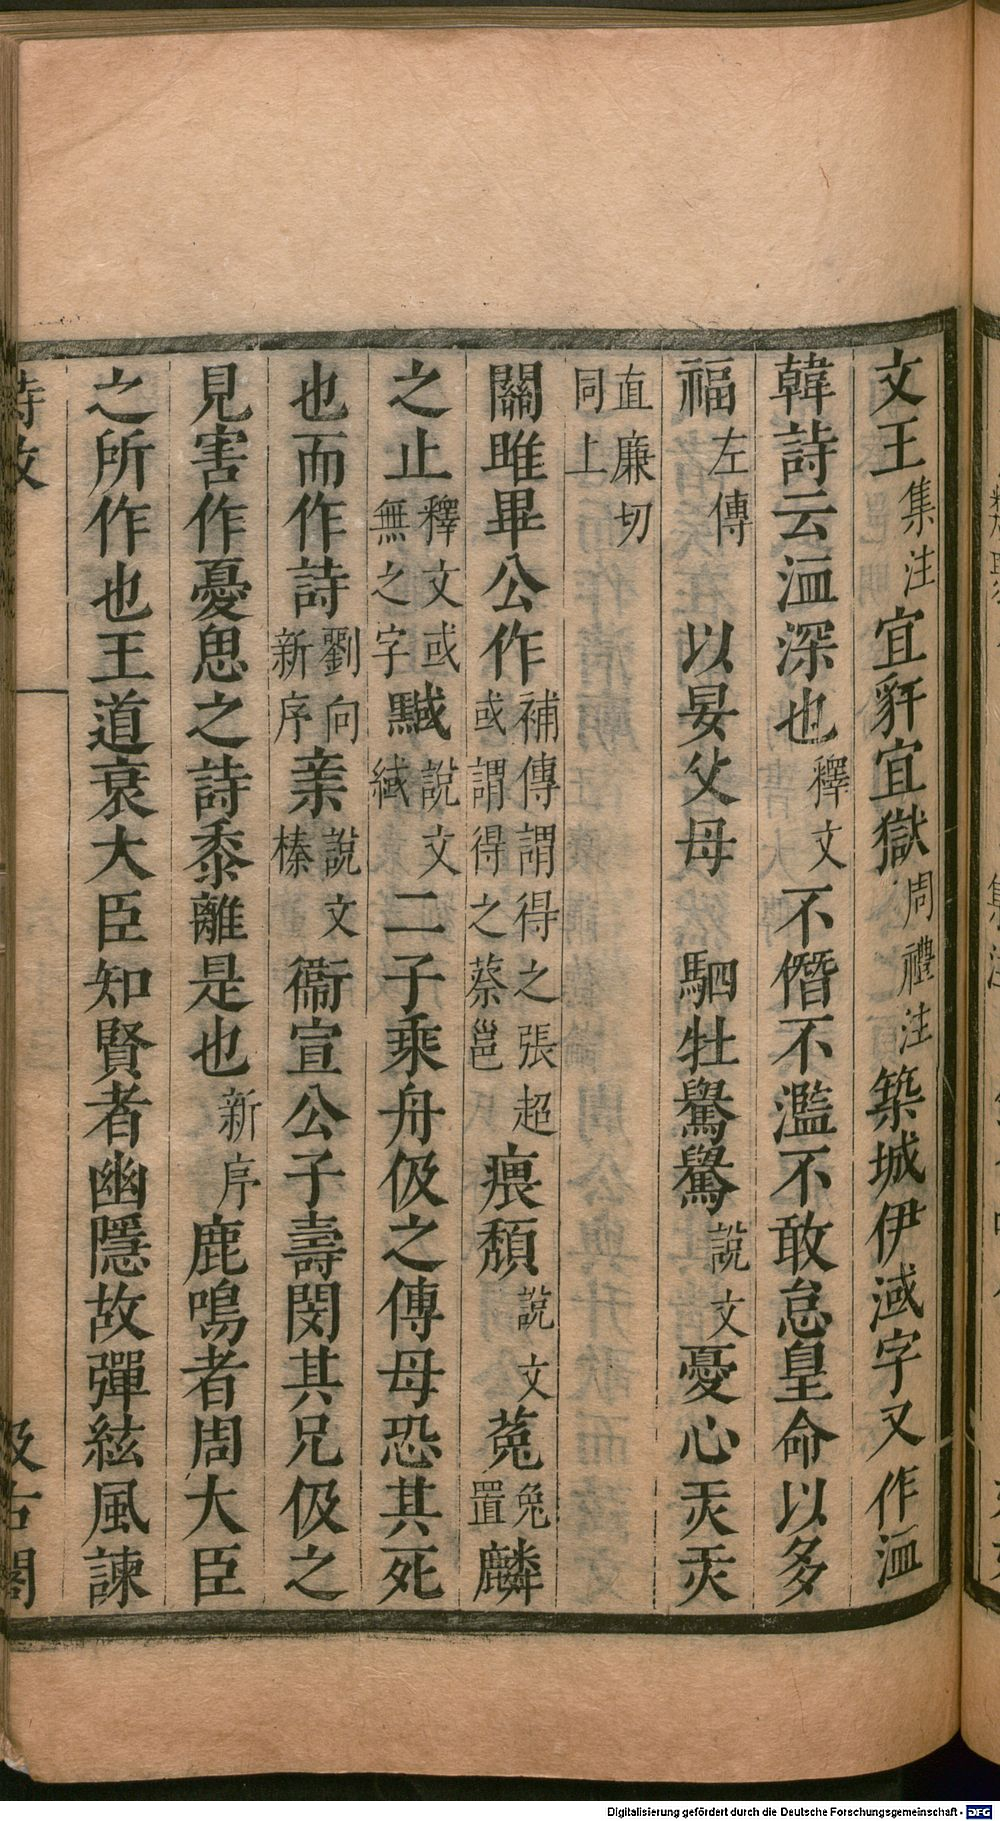 文王集注宜豻宜獄周禮注築城伊淢字又作洫
韓詩云洫深也釋文不僭不濫不敢怠皇命以多
福左傳以晏父母駟牡說文憂心
直廉切同上
關雎畢公作補傳謂得之張超或謂得之蔡邕頹說文菟兔置麟
之止釋文或無之字䵧說文緎二子乘舟伋之傳母恐其死
也而作詩劉向新序亲說文榛衞宣公子壽閔其兄伋之
見害作憂思之詩黍離是也新序鹿鳴者周大臣
之所作也王道衰大臣知賢者幽隱故彈絃風諫
詩攷 汲古閣
Digitalisierung gefördert durch die Deutsche Forschungsgemeinschaft - DFG